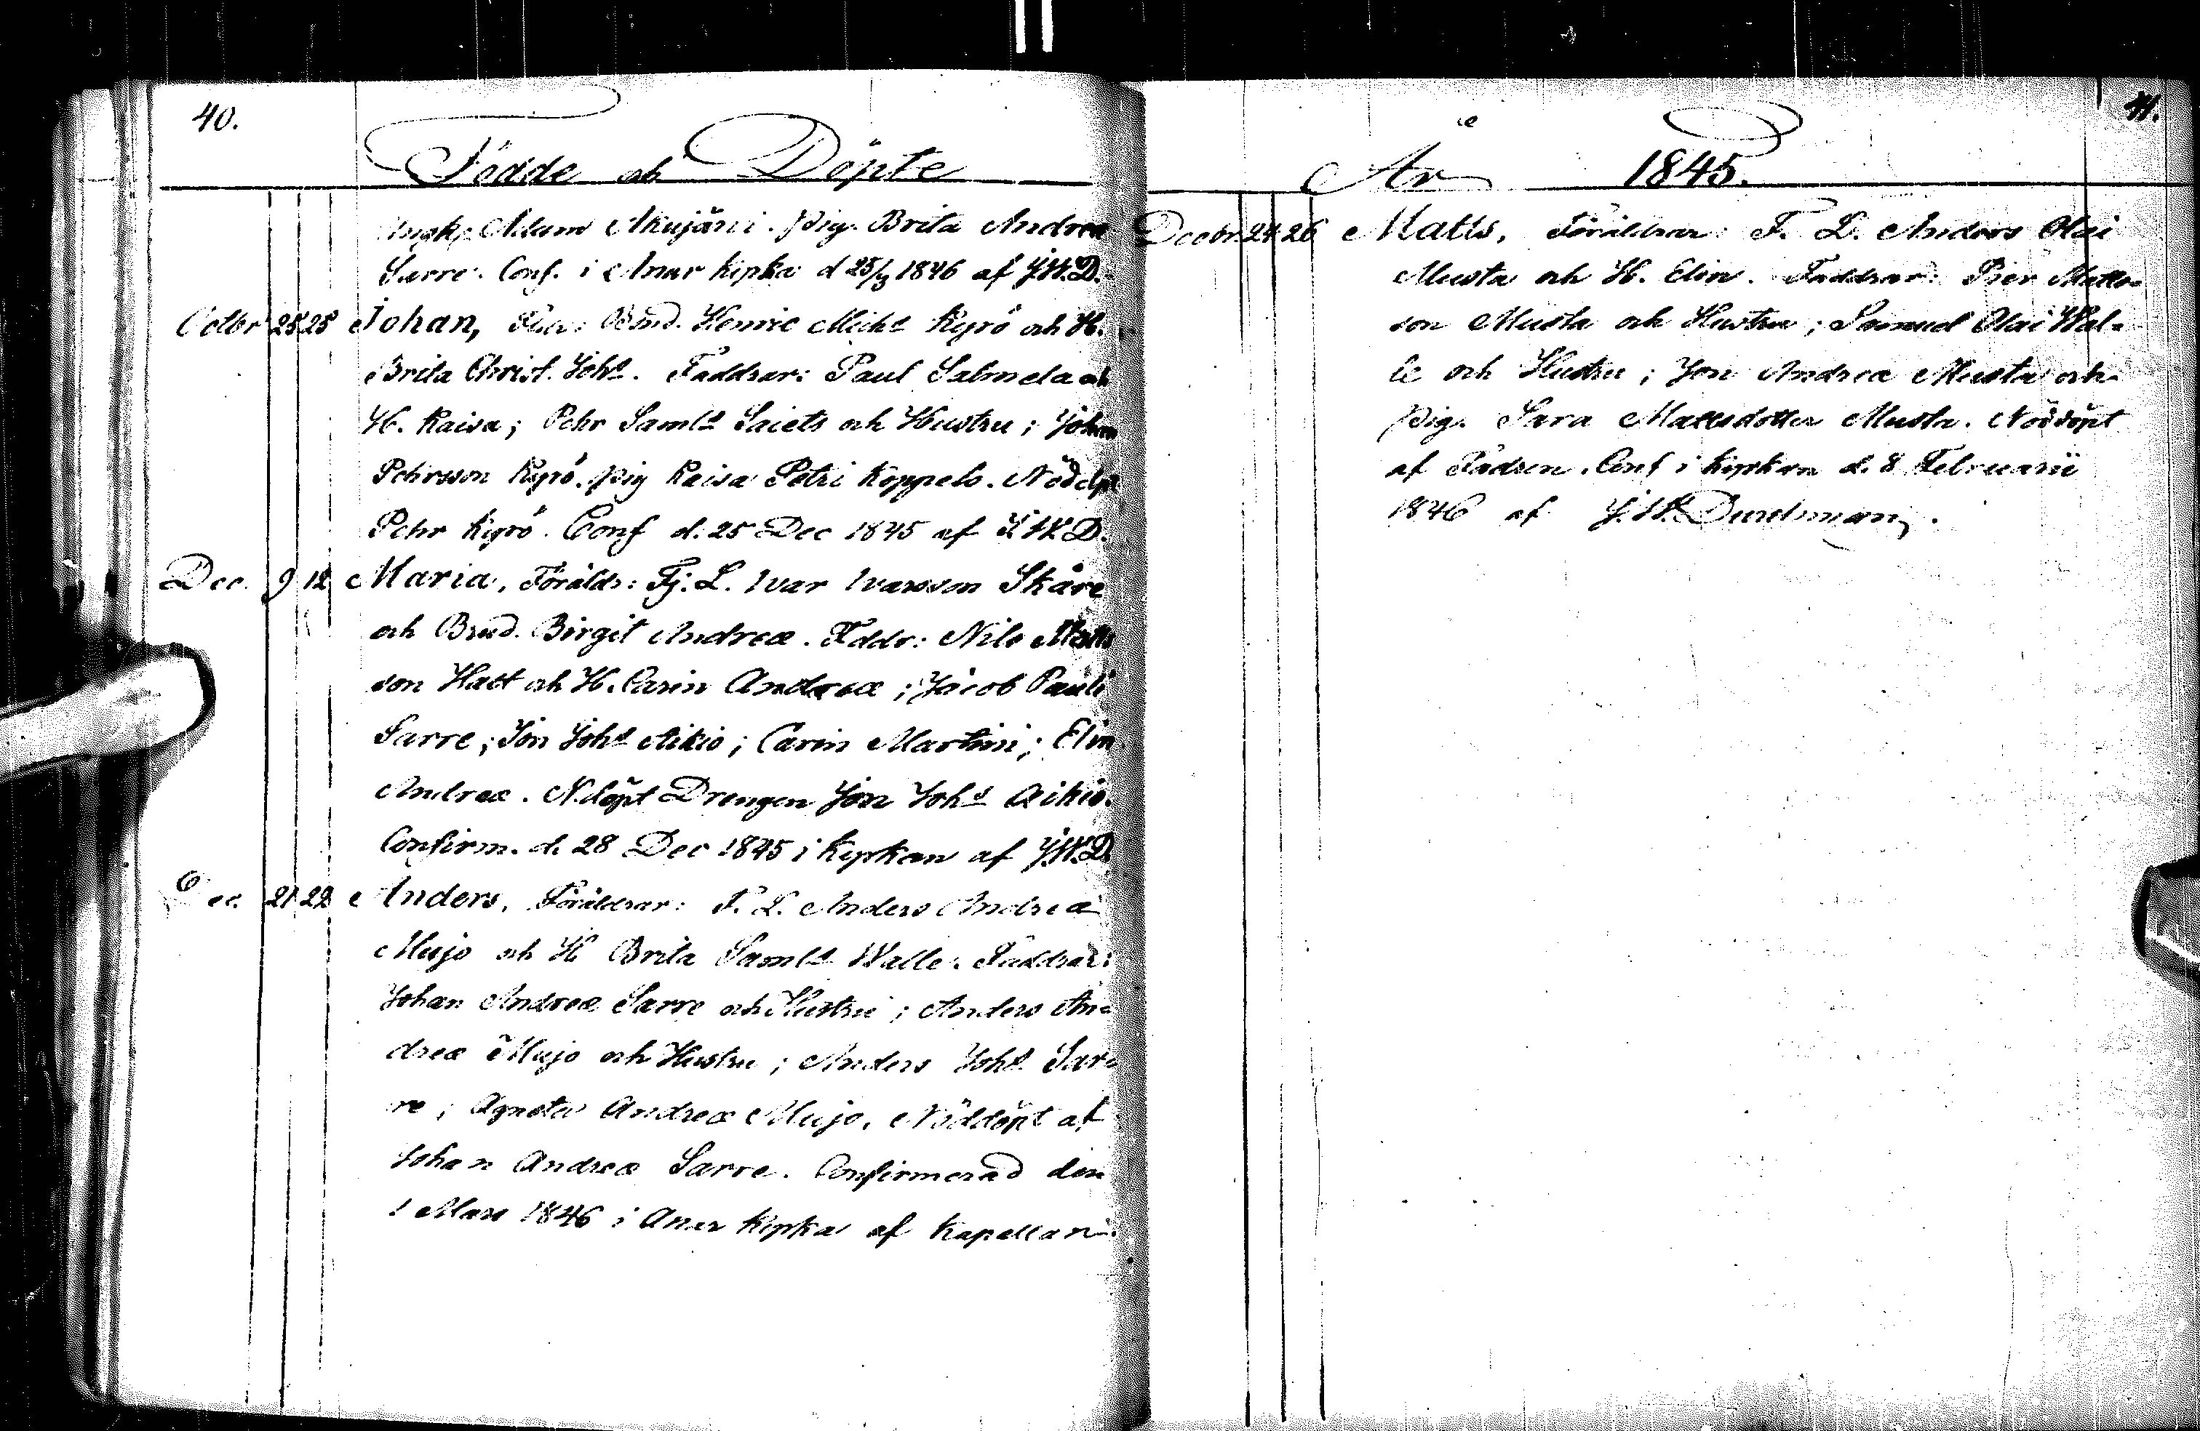 40.
Födde och Döpte
Ungk. Adam Akujärvi. Pig. Brita Andreæ
Sarre. Conf. i Enar Kyrka d 25/3 1846 af J.W.D.
Octbr 25 28 Johan, Bond. Henric Michs Kyrö och H.
Brita Christ. Johs. Faddrar: Paul Salmela och
H. Kaisa; Pehr Samls Saiets och Hustru; Johan
Pehrsson Kyrö. pig Kaisa Petri Koppelo. Nöddöpt
Pehr Kyrö. Conf d. 25 Dec 1845 af J.W.D.
Dec. 9 12 Maria, Föräldr: Fj. L. Ivar Ivarsson Skåre
och Brud. Birgit Andreæ. Fddr: Nils Matts
son Hatt och H. Carin Andreæ; Jacob Pauli
Sarre; Jon Johs Aikio; Carin Martini; Elin
Andreæ. N.döpt Drengen Jon Johs Aikio.
Confirm. d. 28 Dec 1845 i Kyrkan af J.W.D.
Dec. 21 22 Anders, Föräldrar: F. L. Anders Andreæ
Mujo och H Brita Samls Walle. Faddrar:
Johan Andreæ Sarre och Hustru; Anders An=
dreæ Mujo och Hustru; Anders Johs Sar=
re; Agneta Andreæ Mujo. Nöddöpt af
Johan Andreæ Sarre. Confirmerad den
1 Mars 1846 i Enar Kyrka af Kapellan
41.
År 1845.
Decbr. 24 26 Matts, Föräldrar: F. L. Anders Olai
Musta och H. Elin. Faddrar: Pier Matts=
son Musta och Hustru; Samuel Olai Wal=
le och Hustru; Jon Andreæ Musta och
Pig. Sara Mattsdotter Musta. Nöddöpt
af Fadren. Conf i Kyrkan d. 8 Februarii
1846 af J. W. Durchman.